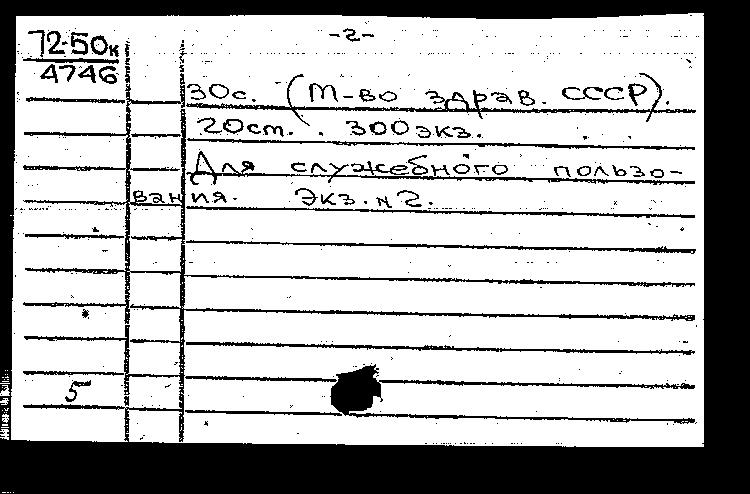 -2-
72-50к
4746
30с. (М-во здрав. СССР).
20см. . 300экз.
Для служебного пользо-
вания. Экз. N 2.
5